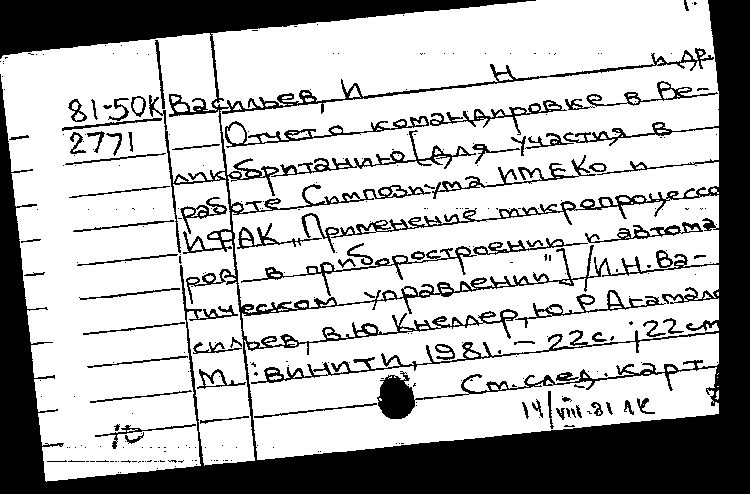 81-50К Васильев, И Н и др.
2771 Отчет о командировке в Ве-
ликобританию [для участия в
работе Симпозиума ИМЕКО и
ИФАК „Применение микропроцессо
ров в приборостроении и автома
тическом управлении"] / И.Н.Ва-
сильев, В.Ю. Кнеллер, Ю.Р.
М. : ВИНИТИ, 1981. – 22с. ; 22см
См. след. карт
14/VIII.81
10